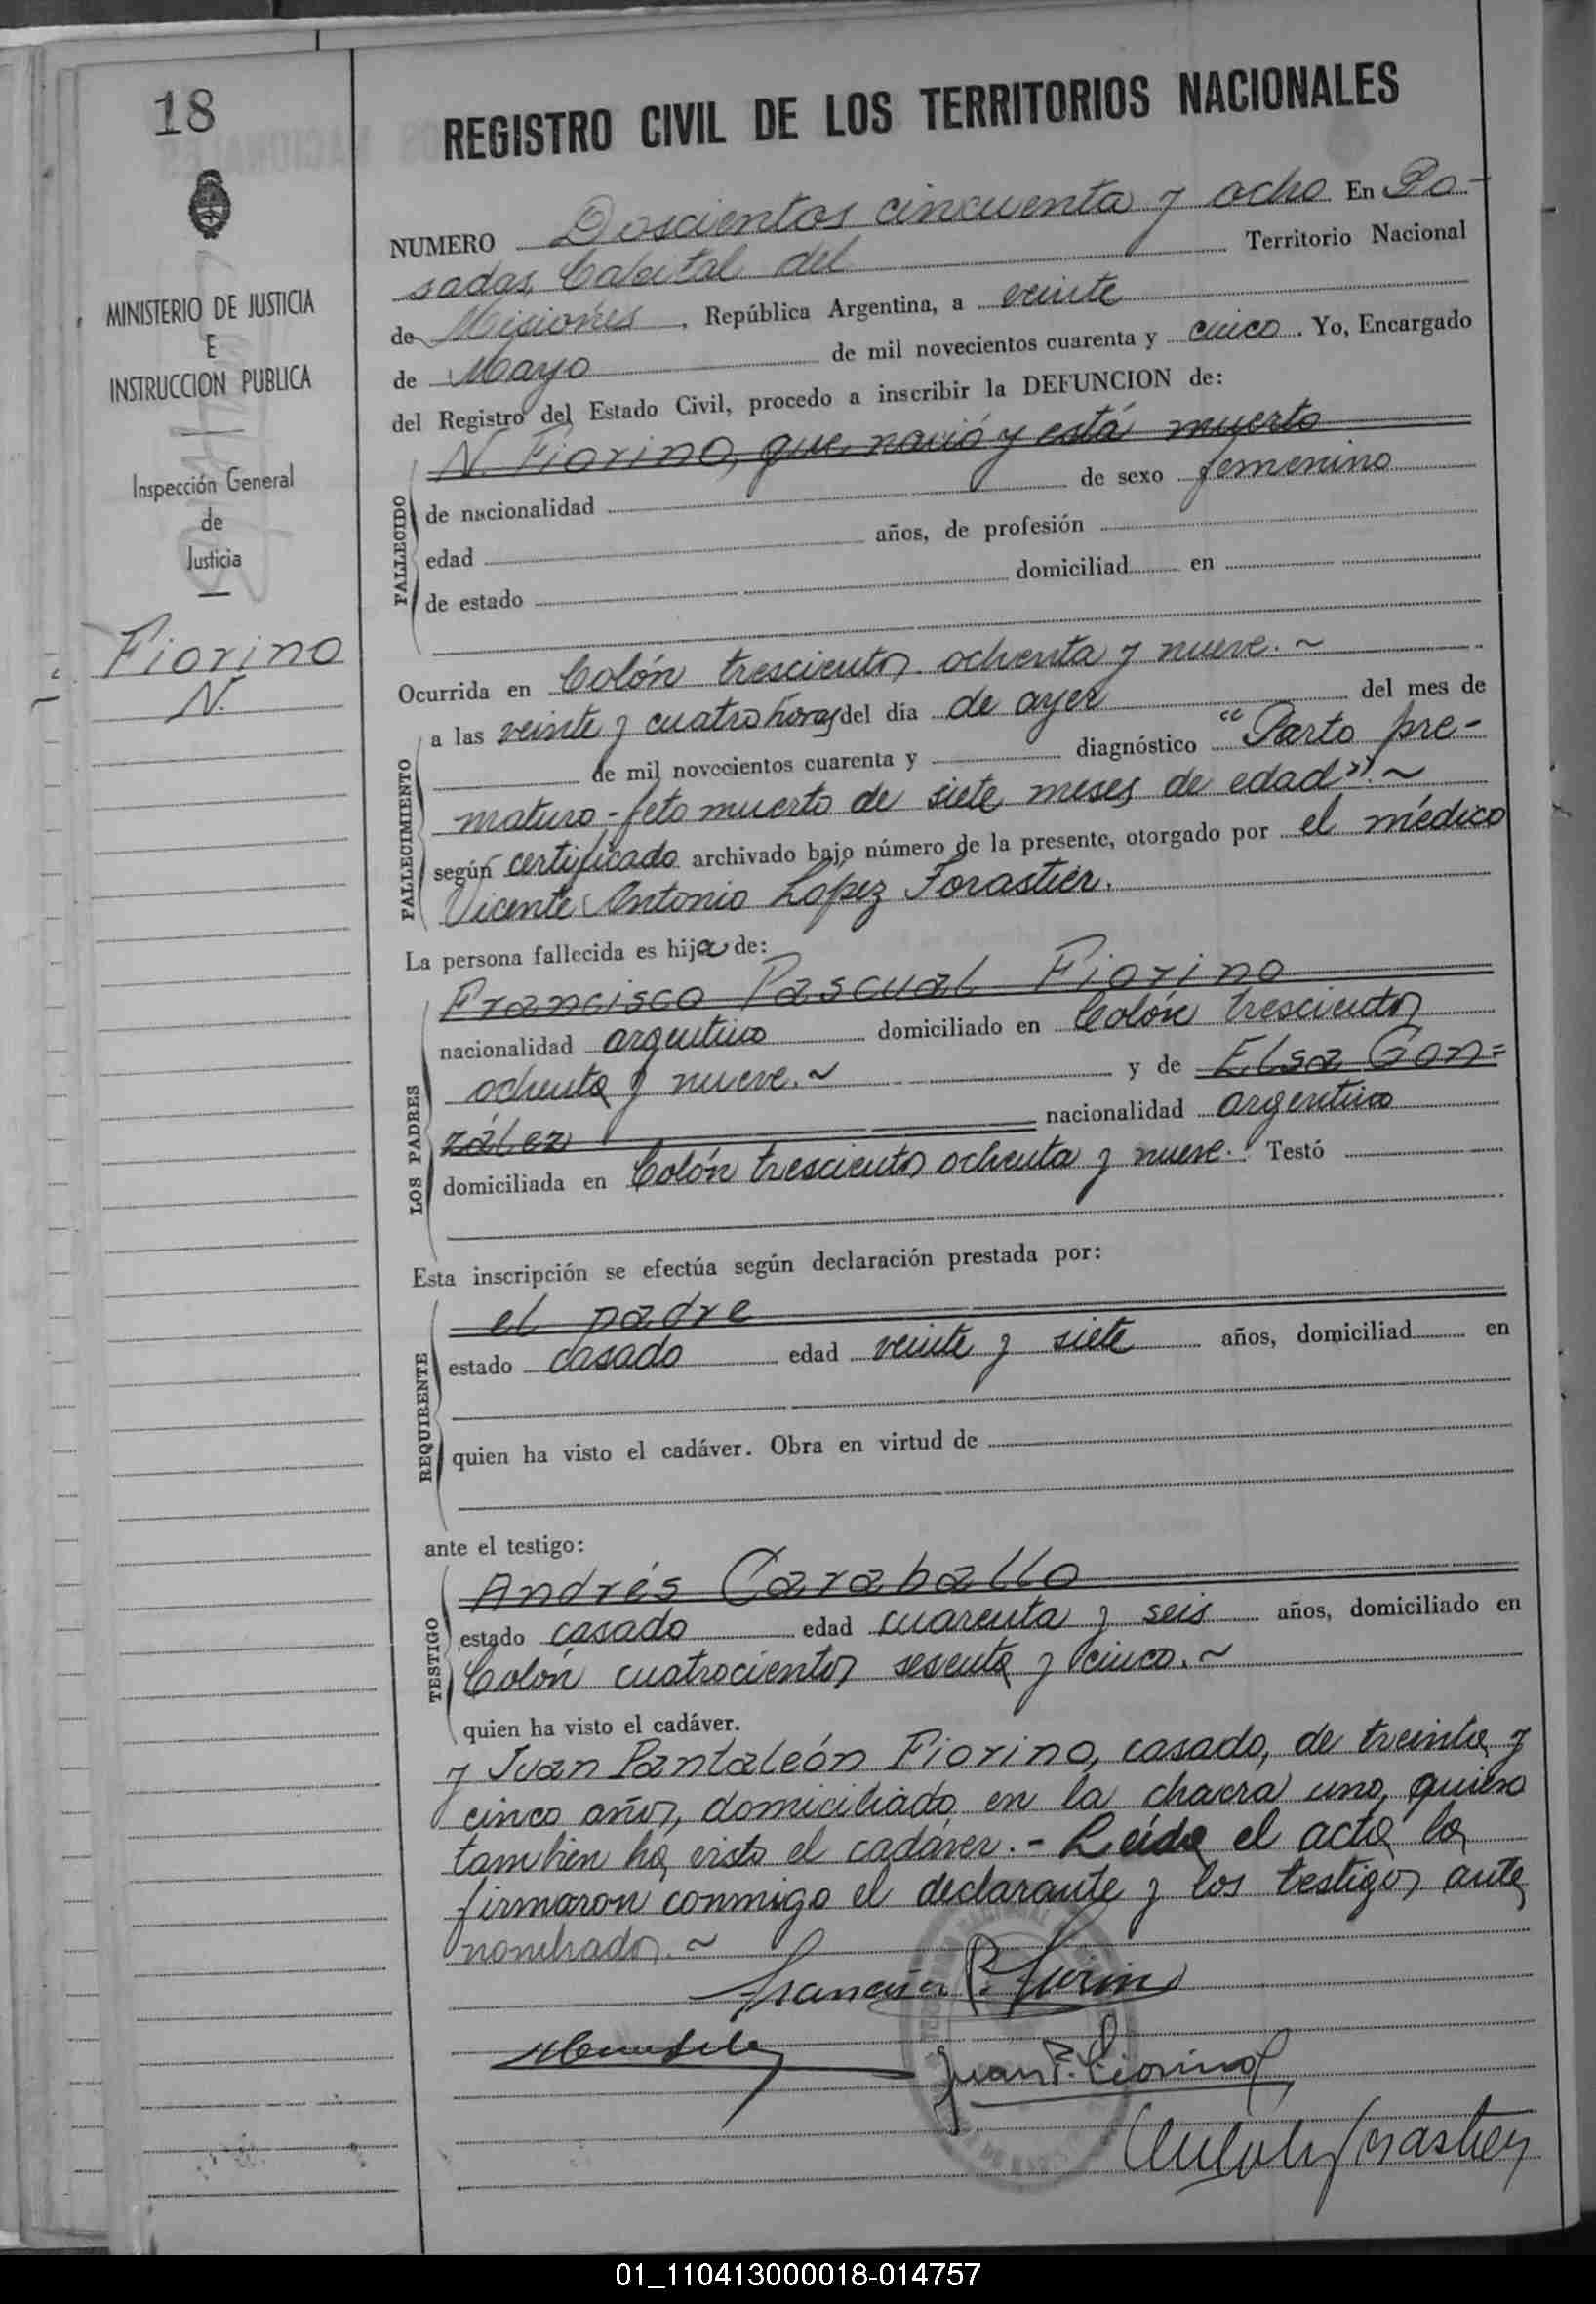 18
MINISTERIO DE JUSTICIA
E
INSTRUCCION PUBLICA
Inspección General
de
Justicia
Fiorino
N.
REGISTRO CIVIL DE LOS TERRITORIOS NACIONALES
NUMERO Doscientos cincuenta y ocho En Po-
sadas, Capital del Territorio Nacional
de Misiones, República Argentina, a veinte
de Mayo de mil novecientos cuarenta y cinco. Yo, Encargado
del Registro del Estado Civil, procedo a inscribir la DEFUNCION de:
FALLECIDO
N. Fiorino, que nació y está muerto
de nacionalidad de sexo femenino
edad años, de profesión
de estado domiciliad en
Ocurrida en Colón trescientos ochenta y nueve. ~
FALLECIMIENTO
a las veinte y cuatro horas del día de ayer del mes de
de mil novecientos cuarenta y diagnóstico "Parto pre-
maturo - feto muerto de siete meses de edad". ~
según certificado archivado bajo número de la presente, otorgado por el médico
Vicente Antonio López Forastiér.
La persona fallecida es hija de:
LOS PADRES
Francisco Pascual Fiorino
nacionalidad argentino domiciliado en Colón trescientos
ochenta y nueve. ~ y de Elsa Gon=
zález nacionalidad argentina
domiciliada en Colón trescientos ochenta y nueve. Testó
Esta inscripción se efectúa según declaración prestada por:
REQUIRENTE
el padre
estado casado edad veinte y siete años, domiciliad en
quien ha visto el cadáver. Obra en virtud de
ante el testigo:
TESTIGO
Andrés Caraballo
estado casado edad cuarenta y seis años, domiciliado en
Colón cuatrocientos sesenta y cinco. ~
quien ha visto el cadáver.
y Juan Pantaleón Fiorino, casado, de treinta y
cinco años, domiciliado en la chacra uno, quien
tambien ha visto el cadáver. - Leida el acta la
firmaron conmigo el declarante y los testigos ante
nombrados. ~
Francisco P. Fiorino
Juan P. Fiorino
01_110413000018-014757